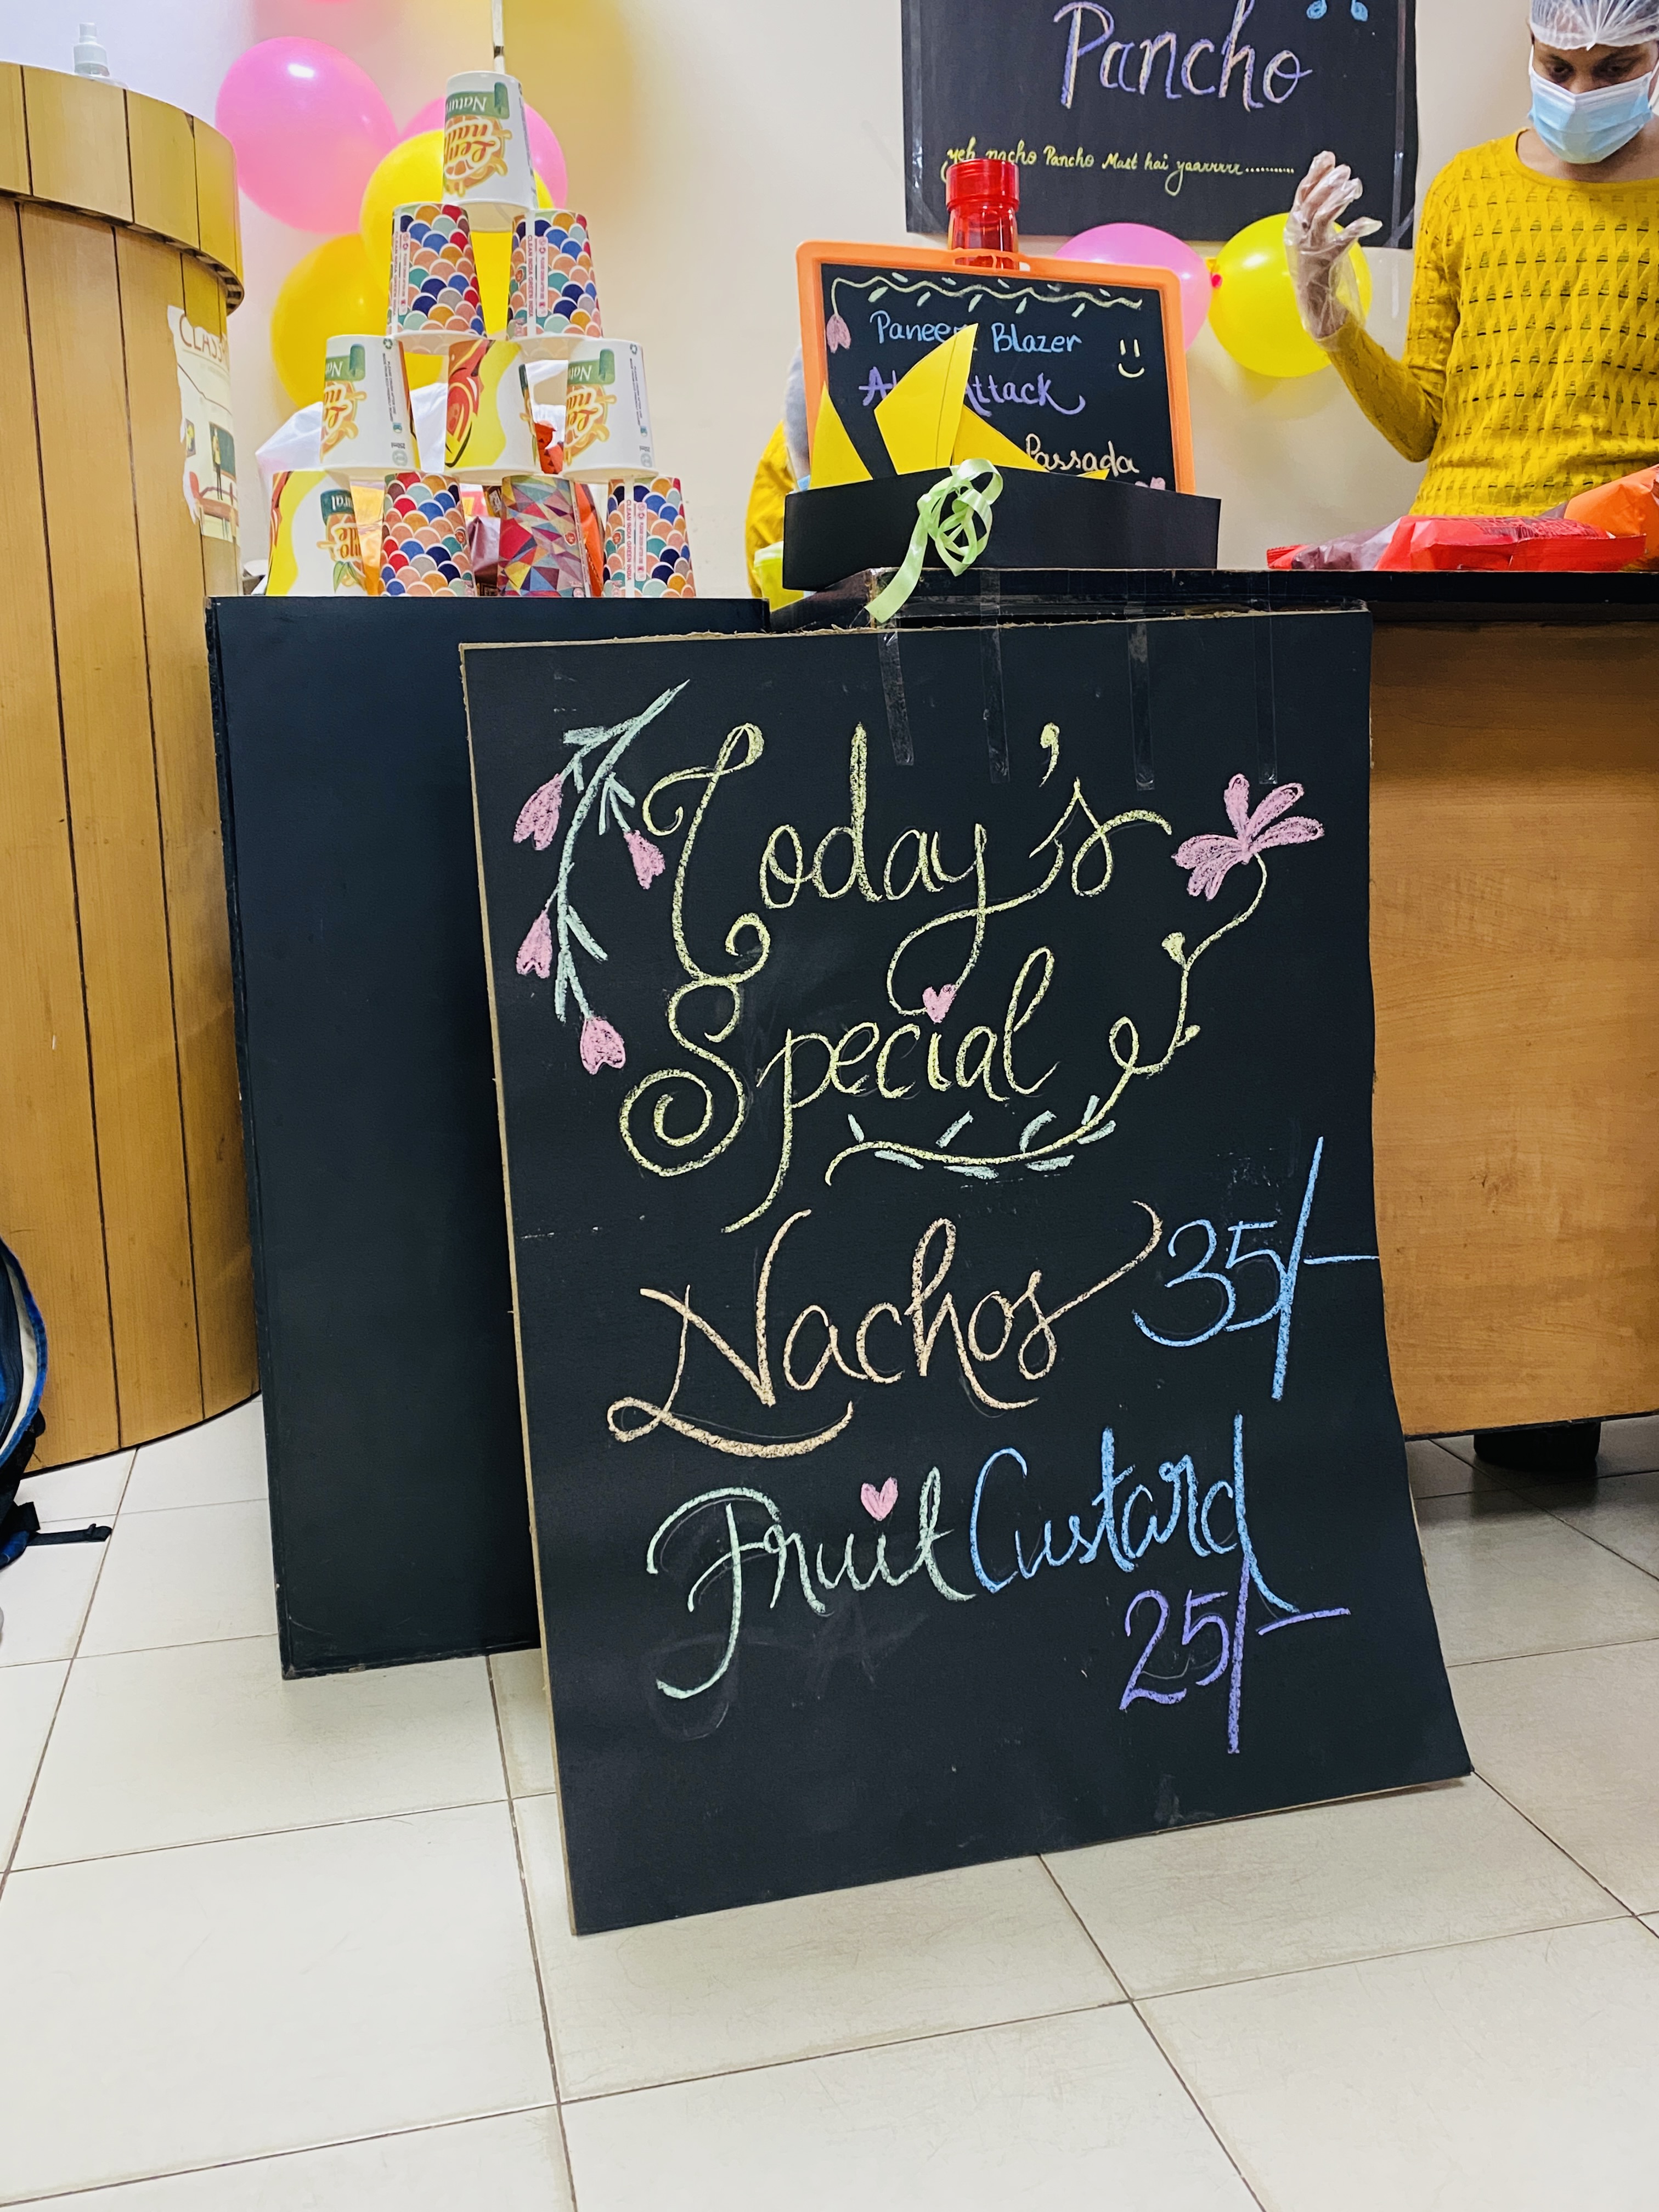 Pancho
yeh nacho Pancho Mast hai yaarrrrr...........
Paneer Blazer
Attack
Passada
CLASS
Natural
Today's
Special
Nachos 35/-
Fruit Custard
25/-